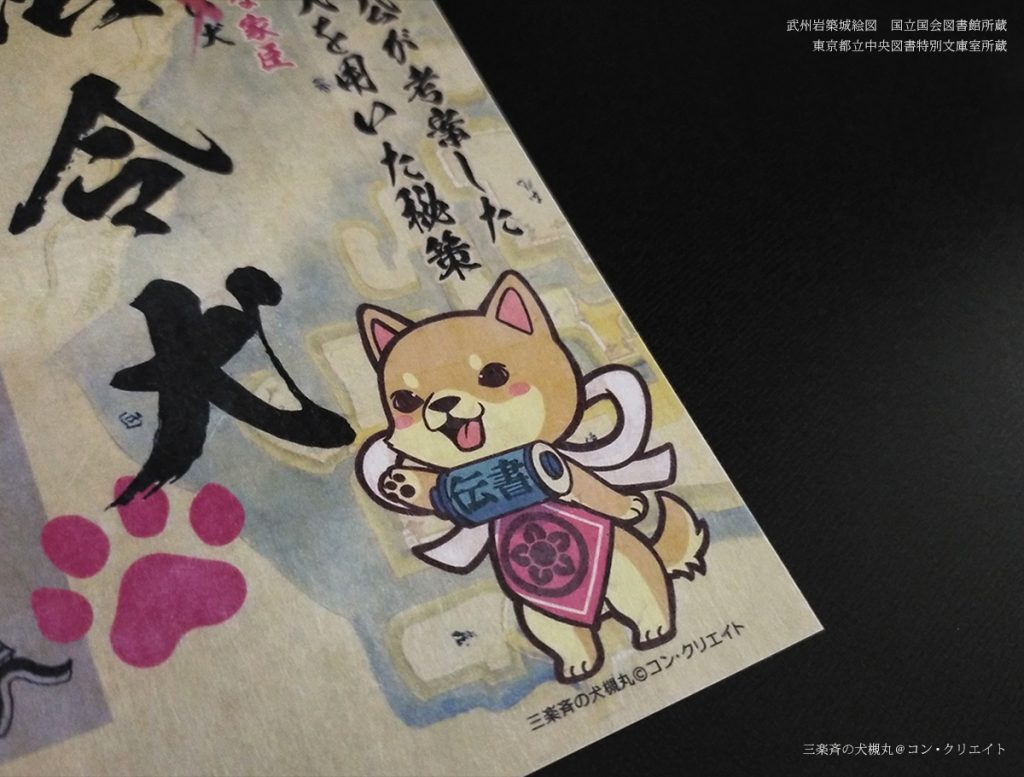 武州岩築城絵図　国立国会図書館所蔵
東京都立中央図書特別文庫室所蔵
家臣
犬
が考案した
を用いた秘策
合犬
伝書
三楽斉の犬槻丸©コン・クリエイト
三楽斉の犬槻丸@コン・クリエイト